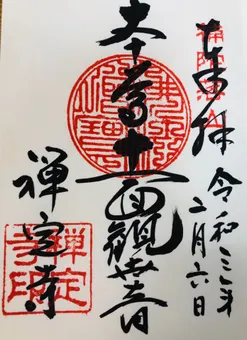 奉拝
令和三年
二月六日
本尊十一面観世音
禅定寺
禅定
寺印